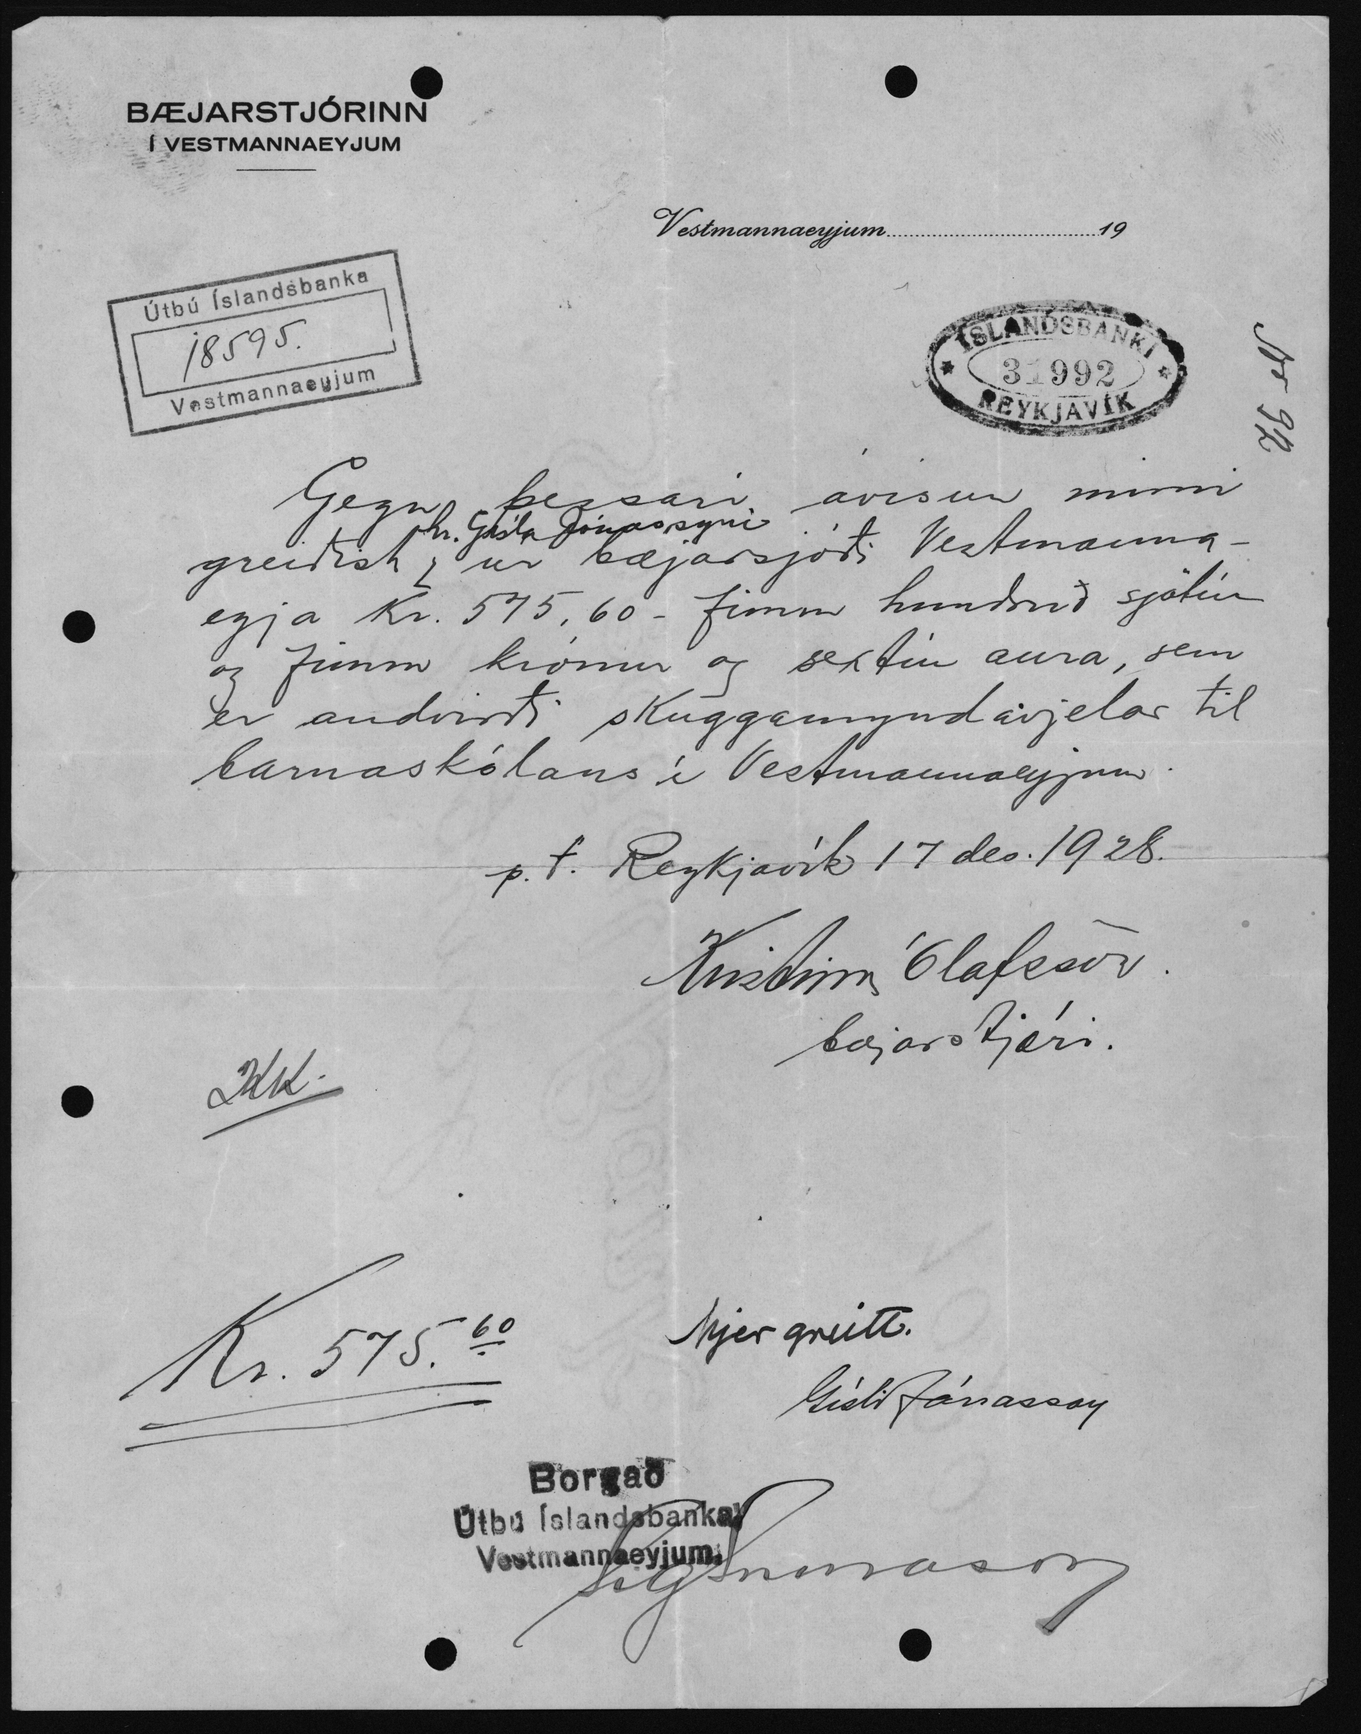 BÆJARSTJÓRINN
Í VESTMANNAEYJUM
Vestmannaeyjum 19
Útbú Íslandsbanka
18595.
Vestmannaeyjum
ÍSLANDSBANKI
31992
REYKJAVÍK
Nr 92
Gegn þessari ávísun minni
hr. Gísla Jónassyni
greiðist úr bæjarsjóði Vestmanna-
eyja Kr. 575,60 - fimm hundruð sjötíu
og fimm krónur og sextíu aura, sem
er andvirði skuggamyndavjelar til
barnaskólans í Vestmannaeyjum.
p.t. Reykjavík 17 des. 1928.
Kristinn Ólafsson.
bæjarstjóri.
KK.
Kr. 575.60
Mjer greitt.
Gísli Jónasson
Borgað
Útbú Íslandsbanka
Vestmannaeyjum.